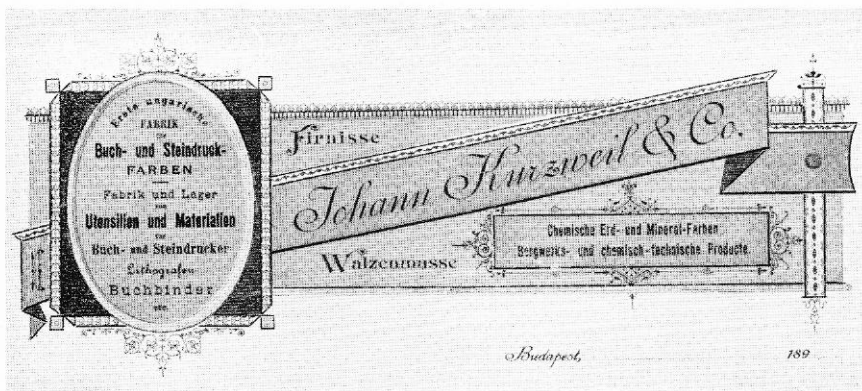 Erste ungarische
FABRIK
von
Buch- und Steindruck-
FARBEN
Fabrik und Lager
von
Utensilien und Materialien
für
Buch- und Steindrucker
Lithografen
Buchbinder
etc.
Firnisse
Johann Kurzweil & Co.
Walzenmasse
Chemische Erd- und Mineral-Farben
Bergwerks- und chemisch-technische Producte.
Budapest,
189